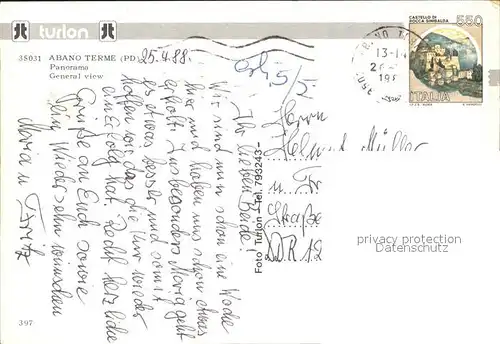 turlon
35031 ABANO TERME (PD)
Panorama
General view
25.4.88.
Ihr lieben Beide!
Wir sind nun schon eine Woche
hier und haben uns schon etwas
erholt. Insbesonders Maria geht
es etwas besser und somit
hoffen wir das die Kur wieder
ein Erfolg hat. Recht herzliche
Grüße an Euch sowie
Wiedersehn wünschen
Maria u Fritz
Foto Turlon - Tel. 793243 -
Herrn
Helmut Müller
u. Fr
Straße
DDR 12
CASTELLO DI
ROCCA SINIBALDA
550
ITALIA
privacy protection
Datenschutz
397